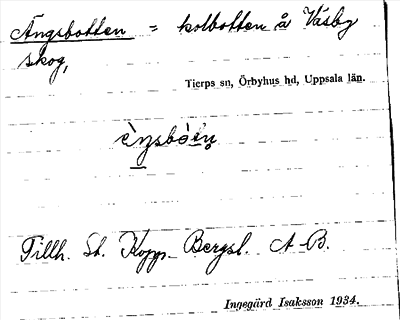 Ängsbotten = kolbotten å Väsby
skog,
Tierps sn, Örbyhus hd, Uppsala län.
Tillh. St. Kopp. Bergsl. A-B.
Ingegärd Isaksson 1934.